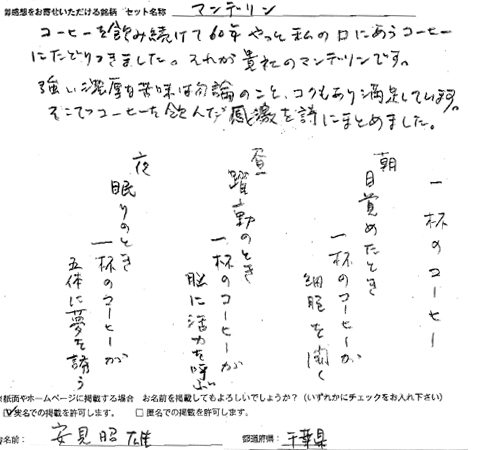 ご感想をお寄せいただける銘柄 セット名称 マンデリン
コーヒーを飲み続けて60年やっと私の口にあうコーヒー
にたどりつきました。それが貴社のマンデリンです。
強い濃厚な苦味は勿論のこと、コクもあり満足しています。
そこでコーヒーを飲んだ感激を詩にまとめました。
一杯のコーヒー
朝
目覚めたとき
一杯のコーヒーが
細胞を開く
昼
躍動のとき
一杯のコーヒーが
脳に活力を呼ぶ
夜
眠りのとき
一杯のコーヒーが
五体に夢を誘う
※紙面やホームページに掲載する場合 お名前を掲載してもよろしいでしょうか？（いずれかにチェックをお入れ下さい）
実名での掲載を許可します。 □匿名での掲載を許可します。
お名前： 安見昭雄 都道府県： 千葉県